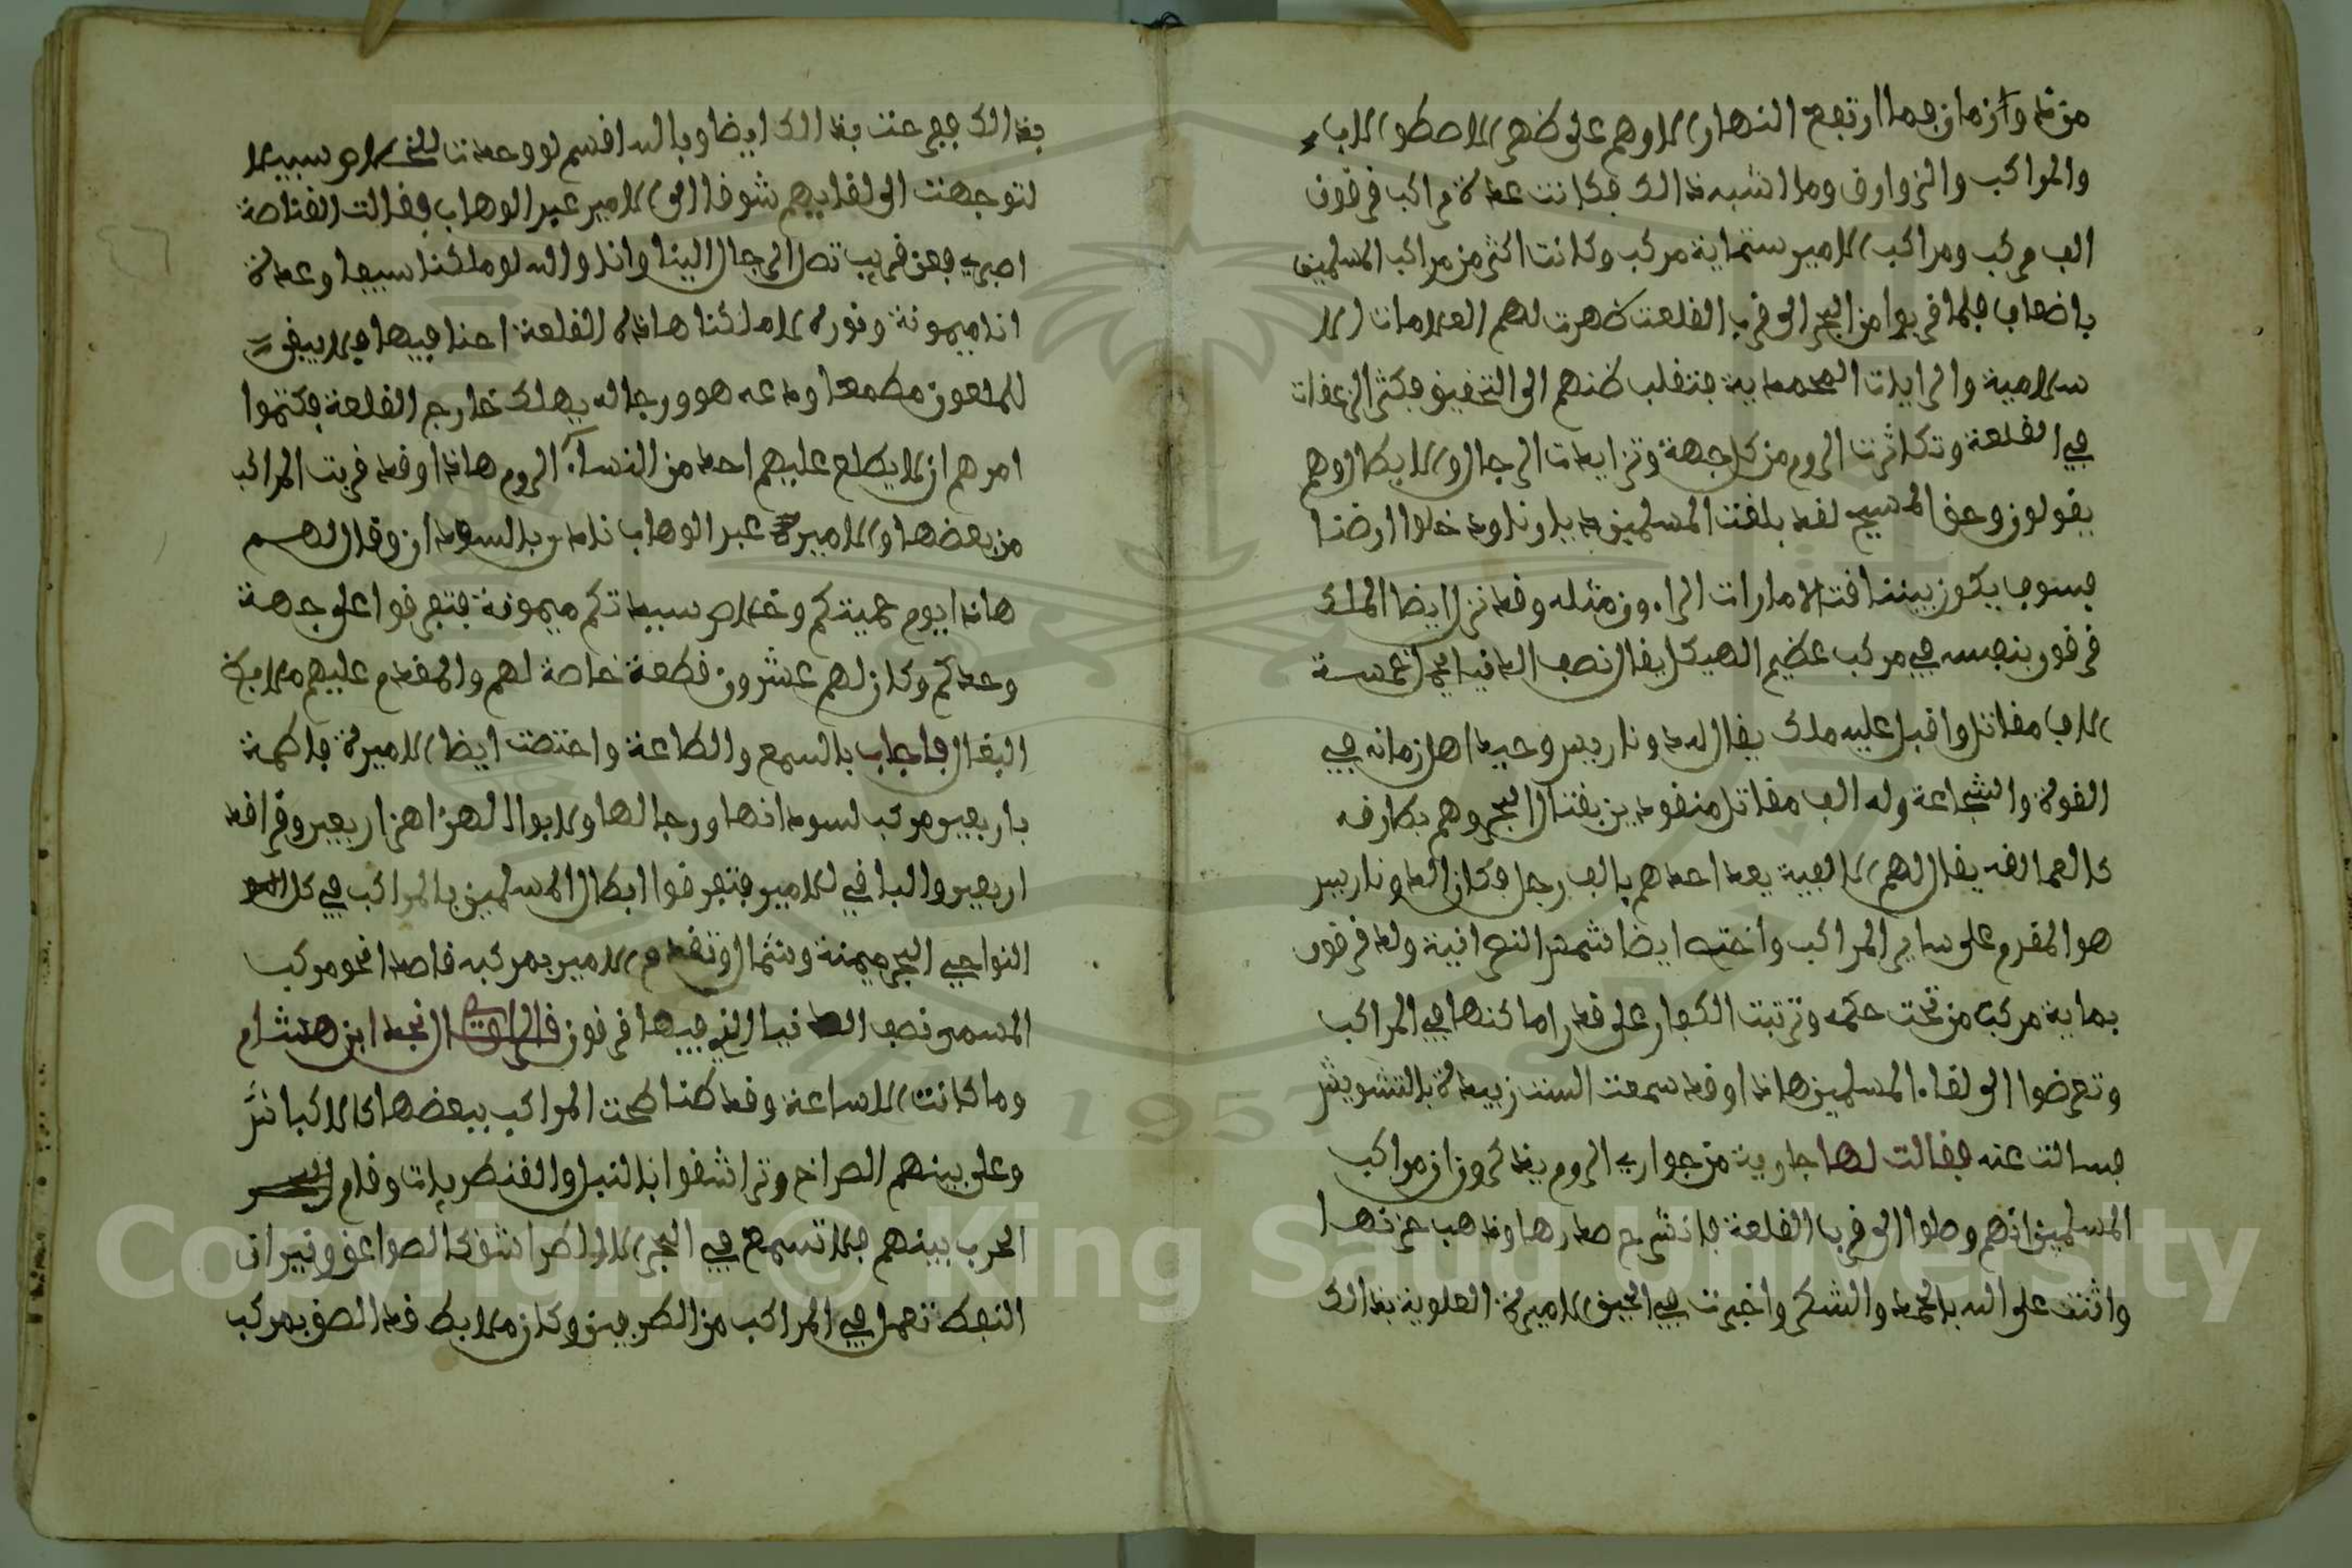 وازمان فما ارتفع النهار الا وهم على ظهر
والمراكب والزوارق وما اشبه ذالك فكانت عدة مراكب قرقون
الف مركب ومراكب الامير ستماية مركب وكانت اكثر من مراكب المسلمين
باضعاف فلما قربوا من البحر الى قرب القلعت ظهرت لهم العلامات الا
سلامية والرايات المحمدية فتقلب ظنهم الى التحقيق فكثر الزعقات
في القلعة وتكاثرت الروم من كل جهة وتزايدت الرجال والابطال وهم
يقولون وحق المسيح لقد بلغت المسلمين بلادنا ودخلوا ارضنا
فسوف يكون بيننا وقد نزل ايضا الملك
قرقون بنفسه في مركب عظيم الهيكل يقال نصف الدنيا فيه خمسة
الاف مقاتل واقبل عليه ملك يقال له وحيد اهل زمانه في
القوة والشجاعة وله الف مقاتل بقتال البحر وهم بطارقه
كالعمالقه يقال لهم الالفية يعد احدهم بالف رجل فكان
هو المقدم على ساير المراكب واخته ايضا النصرانية ولد قرقون
بماية مركب من تحت حكمه وترتبت الكفار على قدر اماكنها في المراكب
وتعرضوا الى لقاء المسلمين هاذا وقد سمعت الست زبيدة بالتشويش
فسالت عنه فقالت لها جارية من جوار الروم يذكرون ان مراكب
المسلمين انهم وصلوا الى قرب القلعة فانشرح صدرها وذهب حزنها
واثنت على الله بالحمد والشكر واخبرت في الحين الاميرة العلوية بذالك
بذالك ففرحت بذالك ايضا وبالله اقسم لو وجدت للخلاص سبيلا
لتوجهت الى لقايهم شوقا الى الامير عبد الوهاب فقالت القناصة
اصبري فعن قريب تصل الرجال الينا وانا والله لو ملكنا سيفا وعدة
انا وميمونة ونورة لاملكنا هاذه القلعة احنا فيها فلا يبقى
للملعون مطمعا ومدعه هو ورجاله يهلك خارج القلعة فكتموا
امرهم ان لا يطلع عليهم احد من النساء الروم هاذا وقد قربت المراكب
من بعضها والامير عبد الوهاب نادى بالسودان وقال لهم
هاذا يوم حميتكم وخلاص سيدتكم ميمونة فتفرقوا على جهة
وحدكم وكان لهم عشرون قطعة خاصة لهم والمقدم عليهم
البغال فاجاب بالسمع والطاعة واختصت ايضا الاميرة فاطمة
باربعين مركب لسودانها ورجالها ولابو الهزاهز اربعين وقراقد
اربعين والباقي للامير فتفرقوا ابطال المسلمين بالمراكب في كل
النواحي البحر ميمنة وشمال وتقدم الامير بمركبه قاصدا نحو مركب
المسمى نصف الدنيا الذي فيها قرقون قال الراوي نجد ابن هشام
وما كانت الا ساعة وقد تناطحت المراكب ببعضها كالاكباش
وعلى بينهم الصراخ وتراشقوا بالنبل والقنطريات وقام
الحرب بينهم فلا تسمع في البحر كالصواعق ونيران
النفط تعمل في المراكب من الطرفين وكان قد الصق بمركب
Copyright © King Saud University
1957